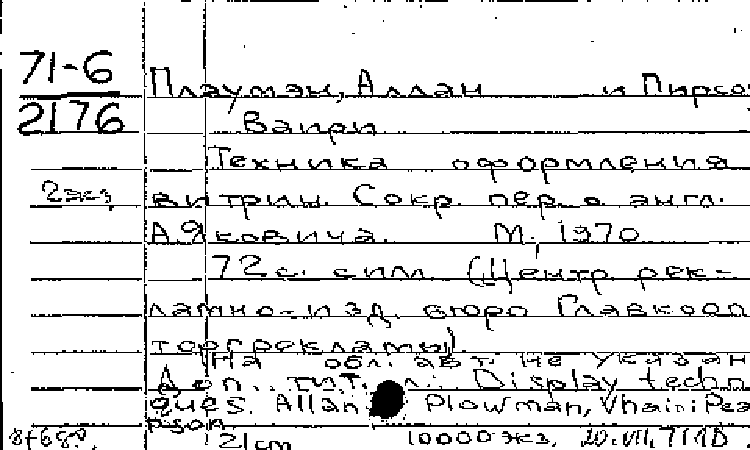 71-6
2176
Плауман, Аллан и Пирсо
Ваири
Техника оформления
2 экз.
витрин. Сокр. пер. с англ.
А. Яковича. М., 1970
72 с. с илл. (Центр. рек-
ламно-изд. бюро Главкооп
торгрекламы)
На обл. авт. не указан
Доп. тит. л.: Display techn
ques. Allan Plowman, Vhairi Pea
rson
21 cm 10000 экз.